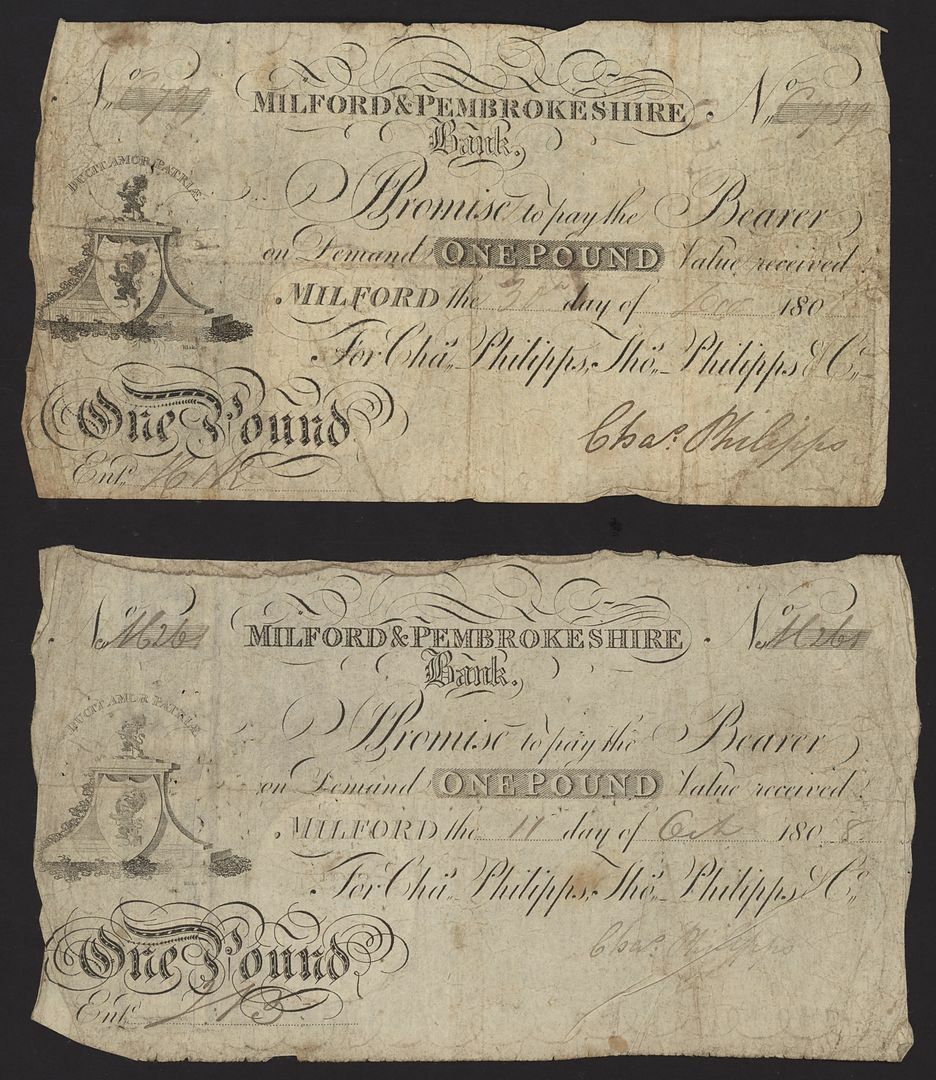 No 739 No 739
MILFORD & PEMBROKESHIRE
Bank.
DUCIT AMOR PATRIÆ
I Promise to pay the Bearer
on Demand ONE POUND Value received.
MILFORD the 31 day of 180
For Chas. Philipps, Thos. Philipps & Co.
One Pound
Chas. Philipps
Entd.
No No
MILFORD & PEMBROKESHIRE
Bank.
DUCIT AMOR PATRIÆ
I Promise to pay the Bearer
on Demand ONE POUND Value received.
MILFORD the 11 day of Oct 1808
For Chas. Philipps, Thos. Philipps & Co.
One Pound
Chas. Philipps
Entd.